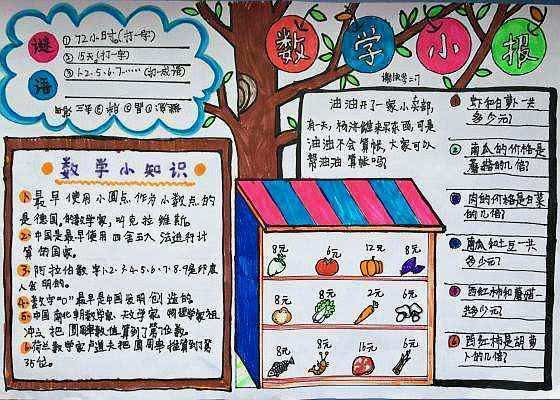 数学小报
谜语
① 72小时(打一字)
② 15天(打一字)
③ 1·2·5·6·7……(打一成语)
数学小知识
1. 最早使用小圆点作为小数点的
是德国的数学家,叫克拉维斯。
2. 中国是最早使用四舍五入法进行计
算的国家。
3. 阿拉伯数字1·2·3·4·5·6·7·8·9是印度
人发明的。
4. 数字"0"最早是中国发明创造的。
5. 中国南北朝数学家、天文学家、物理学家祖
冲之把圆周率数值算到了第七位数。
6. 荷兰数学家卢道夫把圆周率推算到了第
35位。
油油开了一家小卖部,
有一天,杨洋雄来买东西,可是
油油不会算帐,大家可以
帮油油算帐吗?
8元 6元 12元 8元
8元 8元 2元 6元
8元 8元 16元 6元
① 虾和白萝卜一共
多少元?
② 南瓜的价格是
蘑菇的几倍?
③ 肉的价格是白菜
的几倍?
④ 南瓜和土豆一共
多少元?
⑤ 西红柿和蘑菇一
共多少元?
⑥ 西红柿是胡萝
卜的几倍?